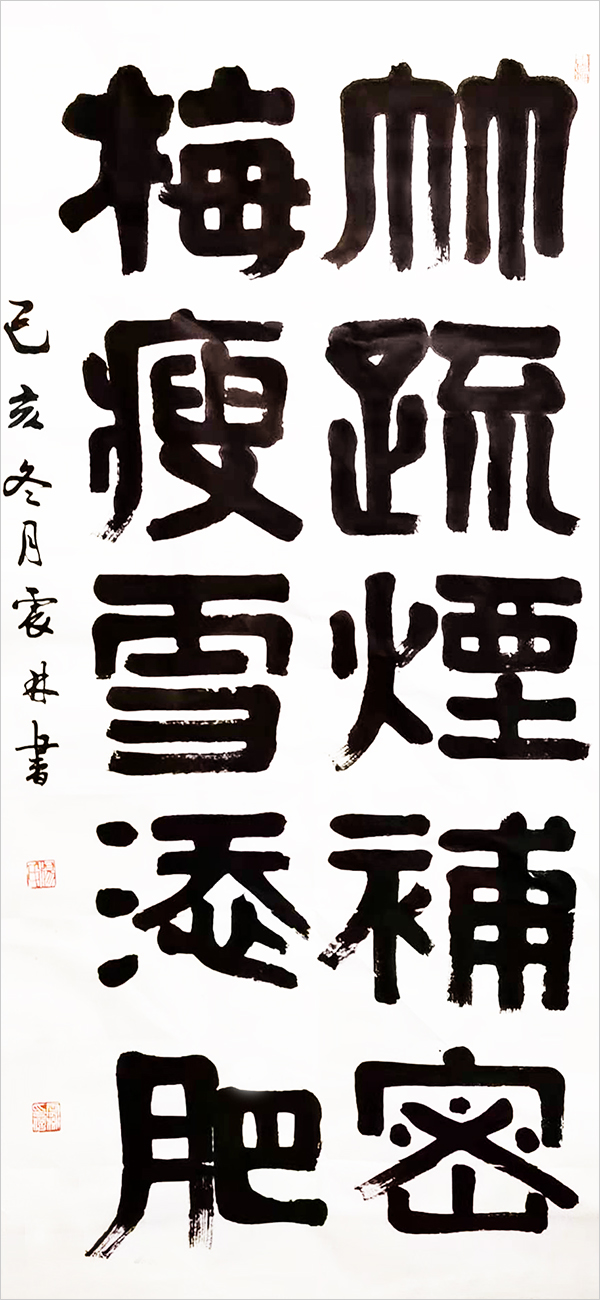 竹疏煙補密
梅瘦雪添肥
己亥冬月震林書